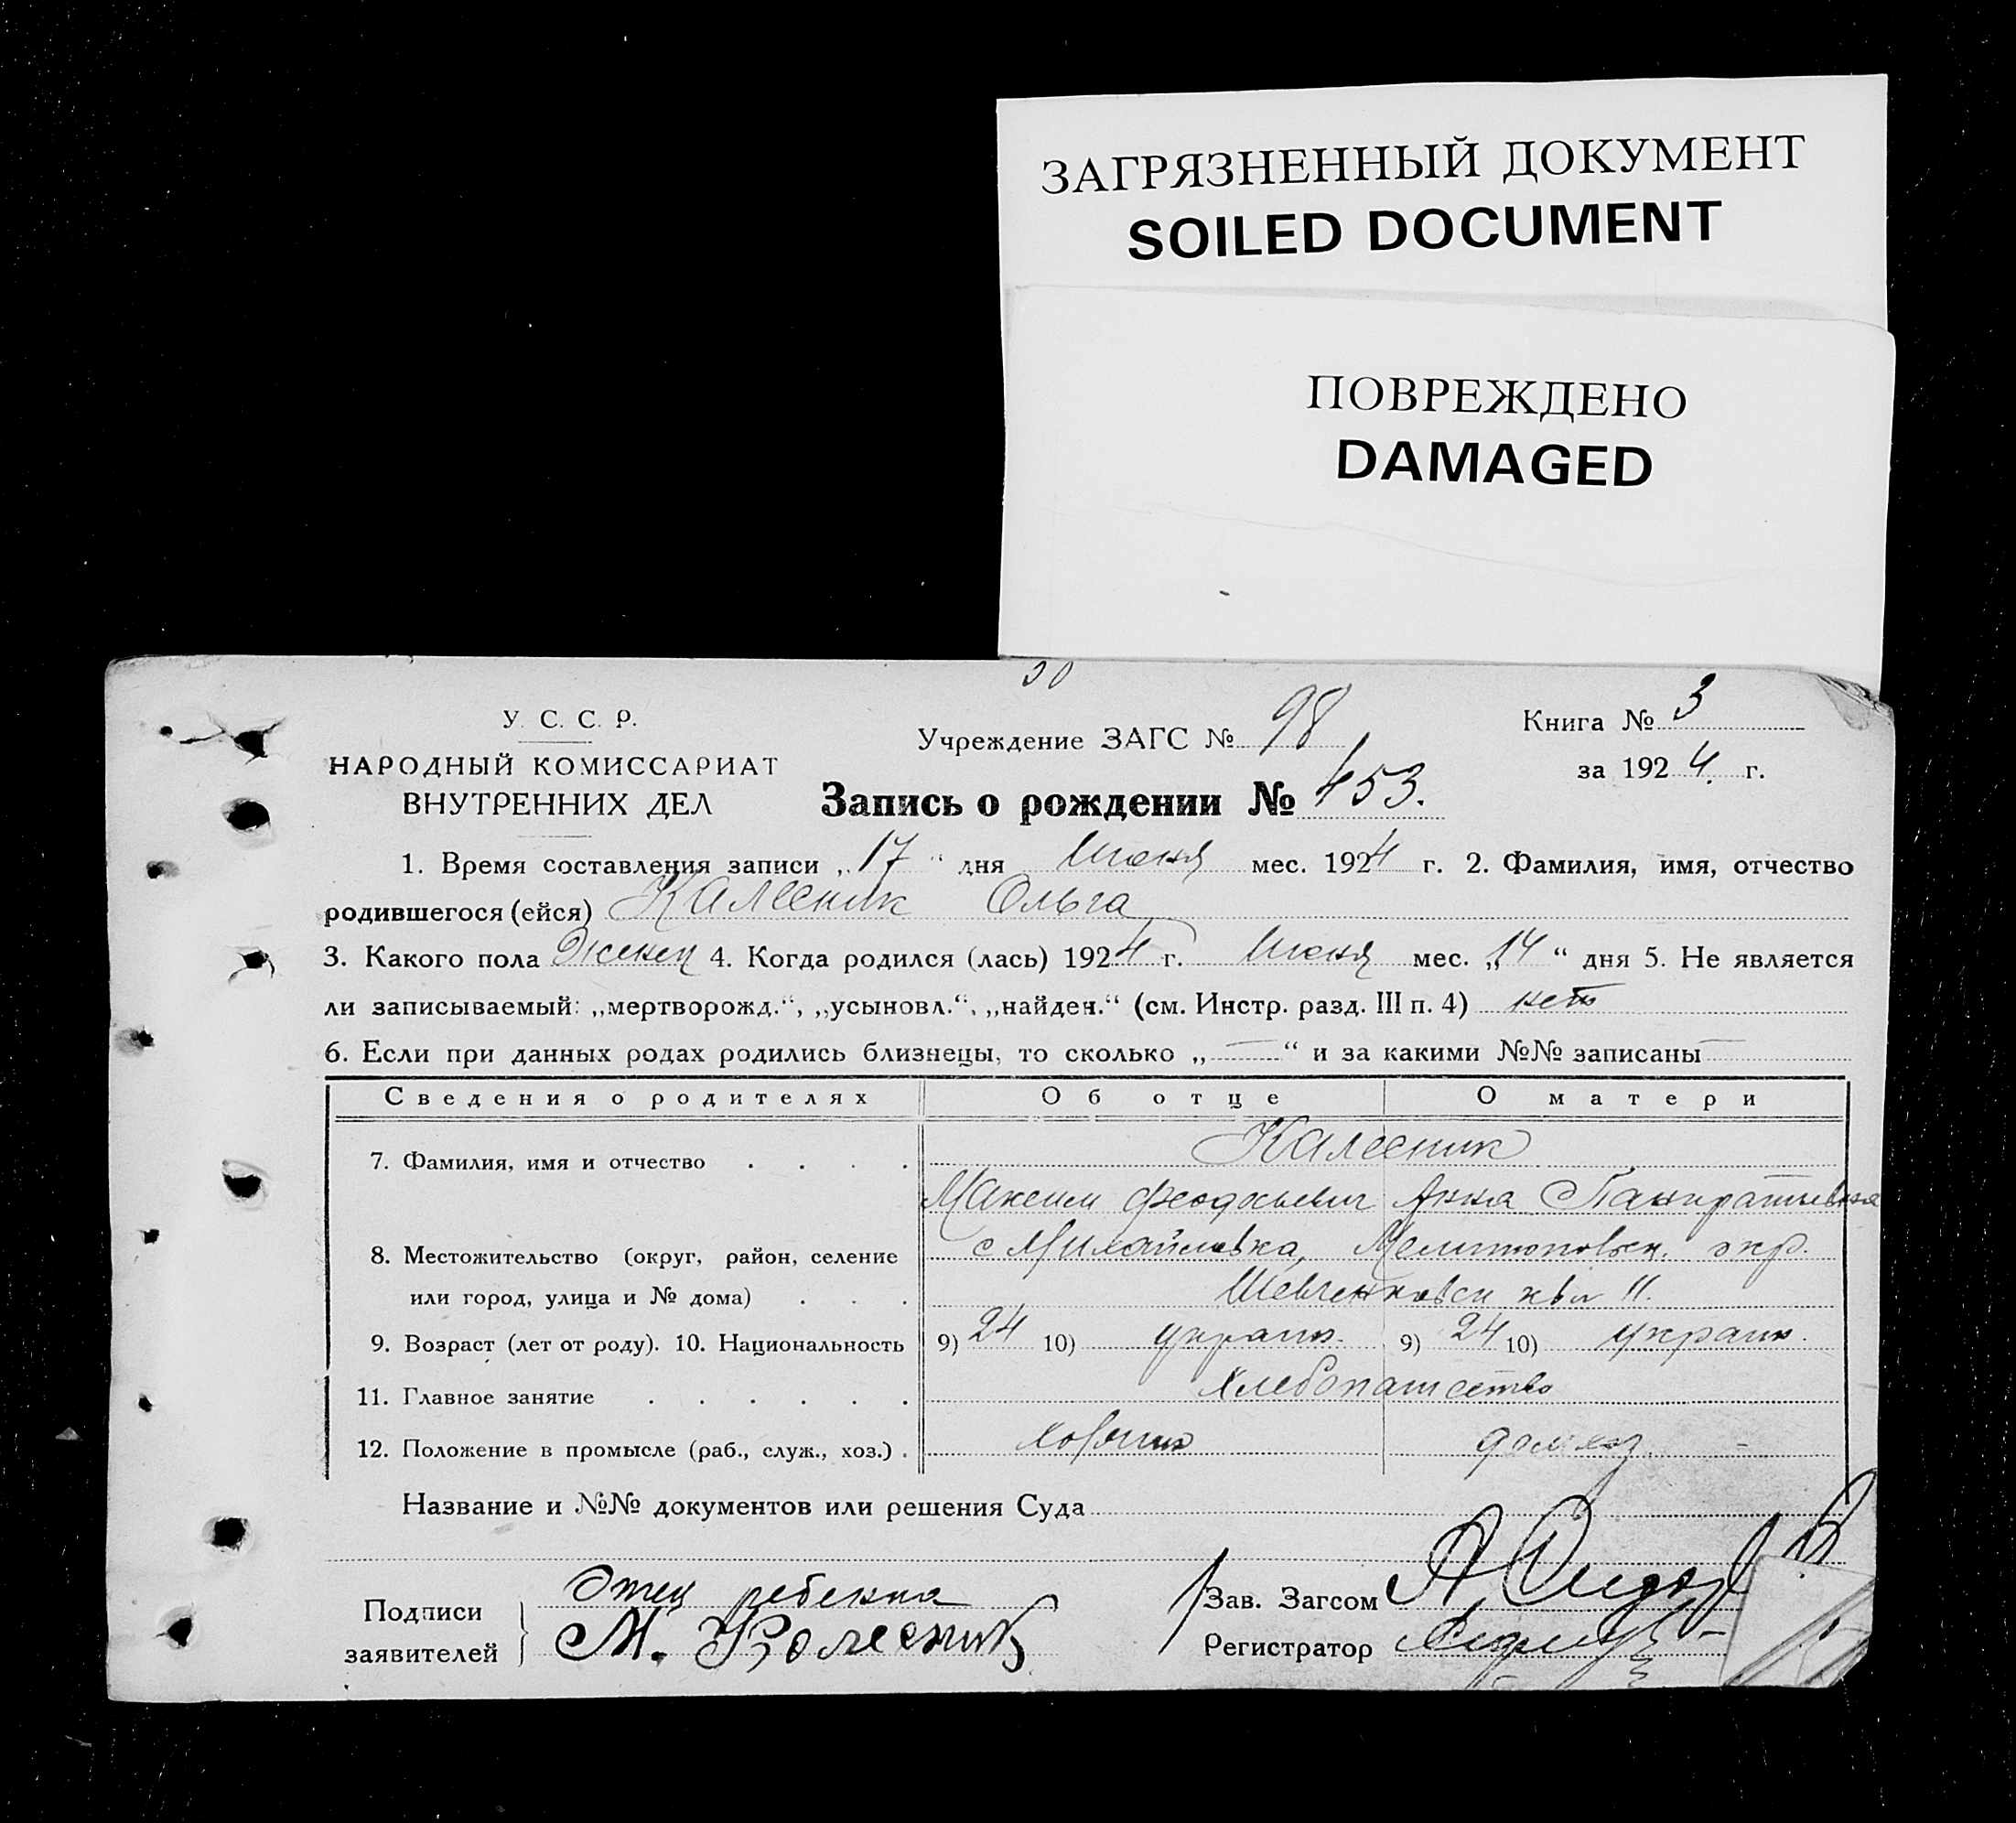 ЗАГРЯЗНЕННЫЙ ДОКУМЕНТ
SOILED DOCUMENT
ПОВРЕЖДЕНО
DAMAGED
У. С. С. Р.
НАРОДНЫЙ КОМИССАРИАТ
ВНУТРЕННИХ ДЕЛ
Учреждение ЗАГС № 98
Книга № 3
за 1924 г.
Запись о рождении № 453.
1. Время составления записи „17“ дня Июня мес. 1924 г. 2. Фамилия, имя, отчество
родившегося (ейся) Калесник Ольга
3. Какого пола Женск 4. Когда родился (лась) 1924 г. Июня мес. „14“ дня 5. Не является
ли записываемый: „мертворожд.“, „усыновл.“, „найден.“ (см. Инстр. разд. III п. 4) нет
6. Если при данных родах родились близнецы, то сколько „—“ и за какими №№ записаны —
Сведения о родителях Об отце О матери
7. Фамилия, имя и отчество . . . . Калесник
Максим Феодосьевич Анна Панкратьевна
8. Местожительство (округ, район, селение с Михайловка, Мелитопольск. окр.
или город, улица и № дома) . . . Шевченковск 11.
9. Возраст (лет от роду). 10. Национальность 9) 24 10) украин. 9) 24 10) украин.
11. Главное занятие . . . . . . Хлебопашество
12. Положение в промысле (раб., служ., хоз.) . хозяин домхоз. –
Название и №№ документов или решения Суда
Подписи заявителей } Отец ребенка
М. Колесник
Зав. Загсом
Регистратор